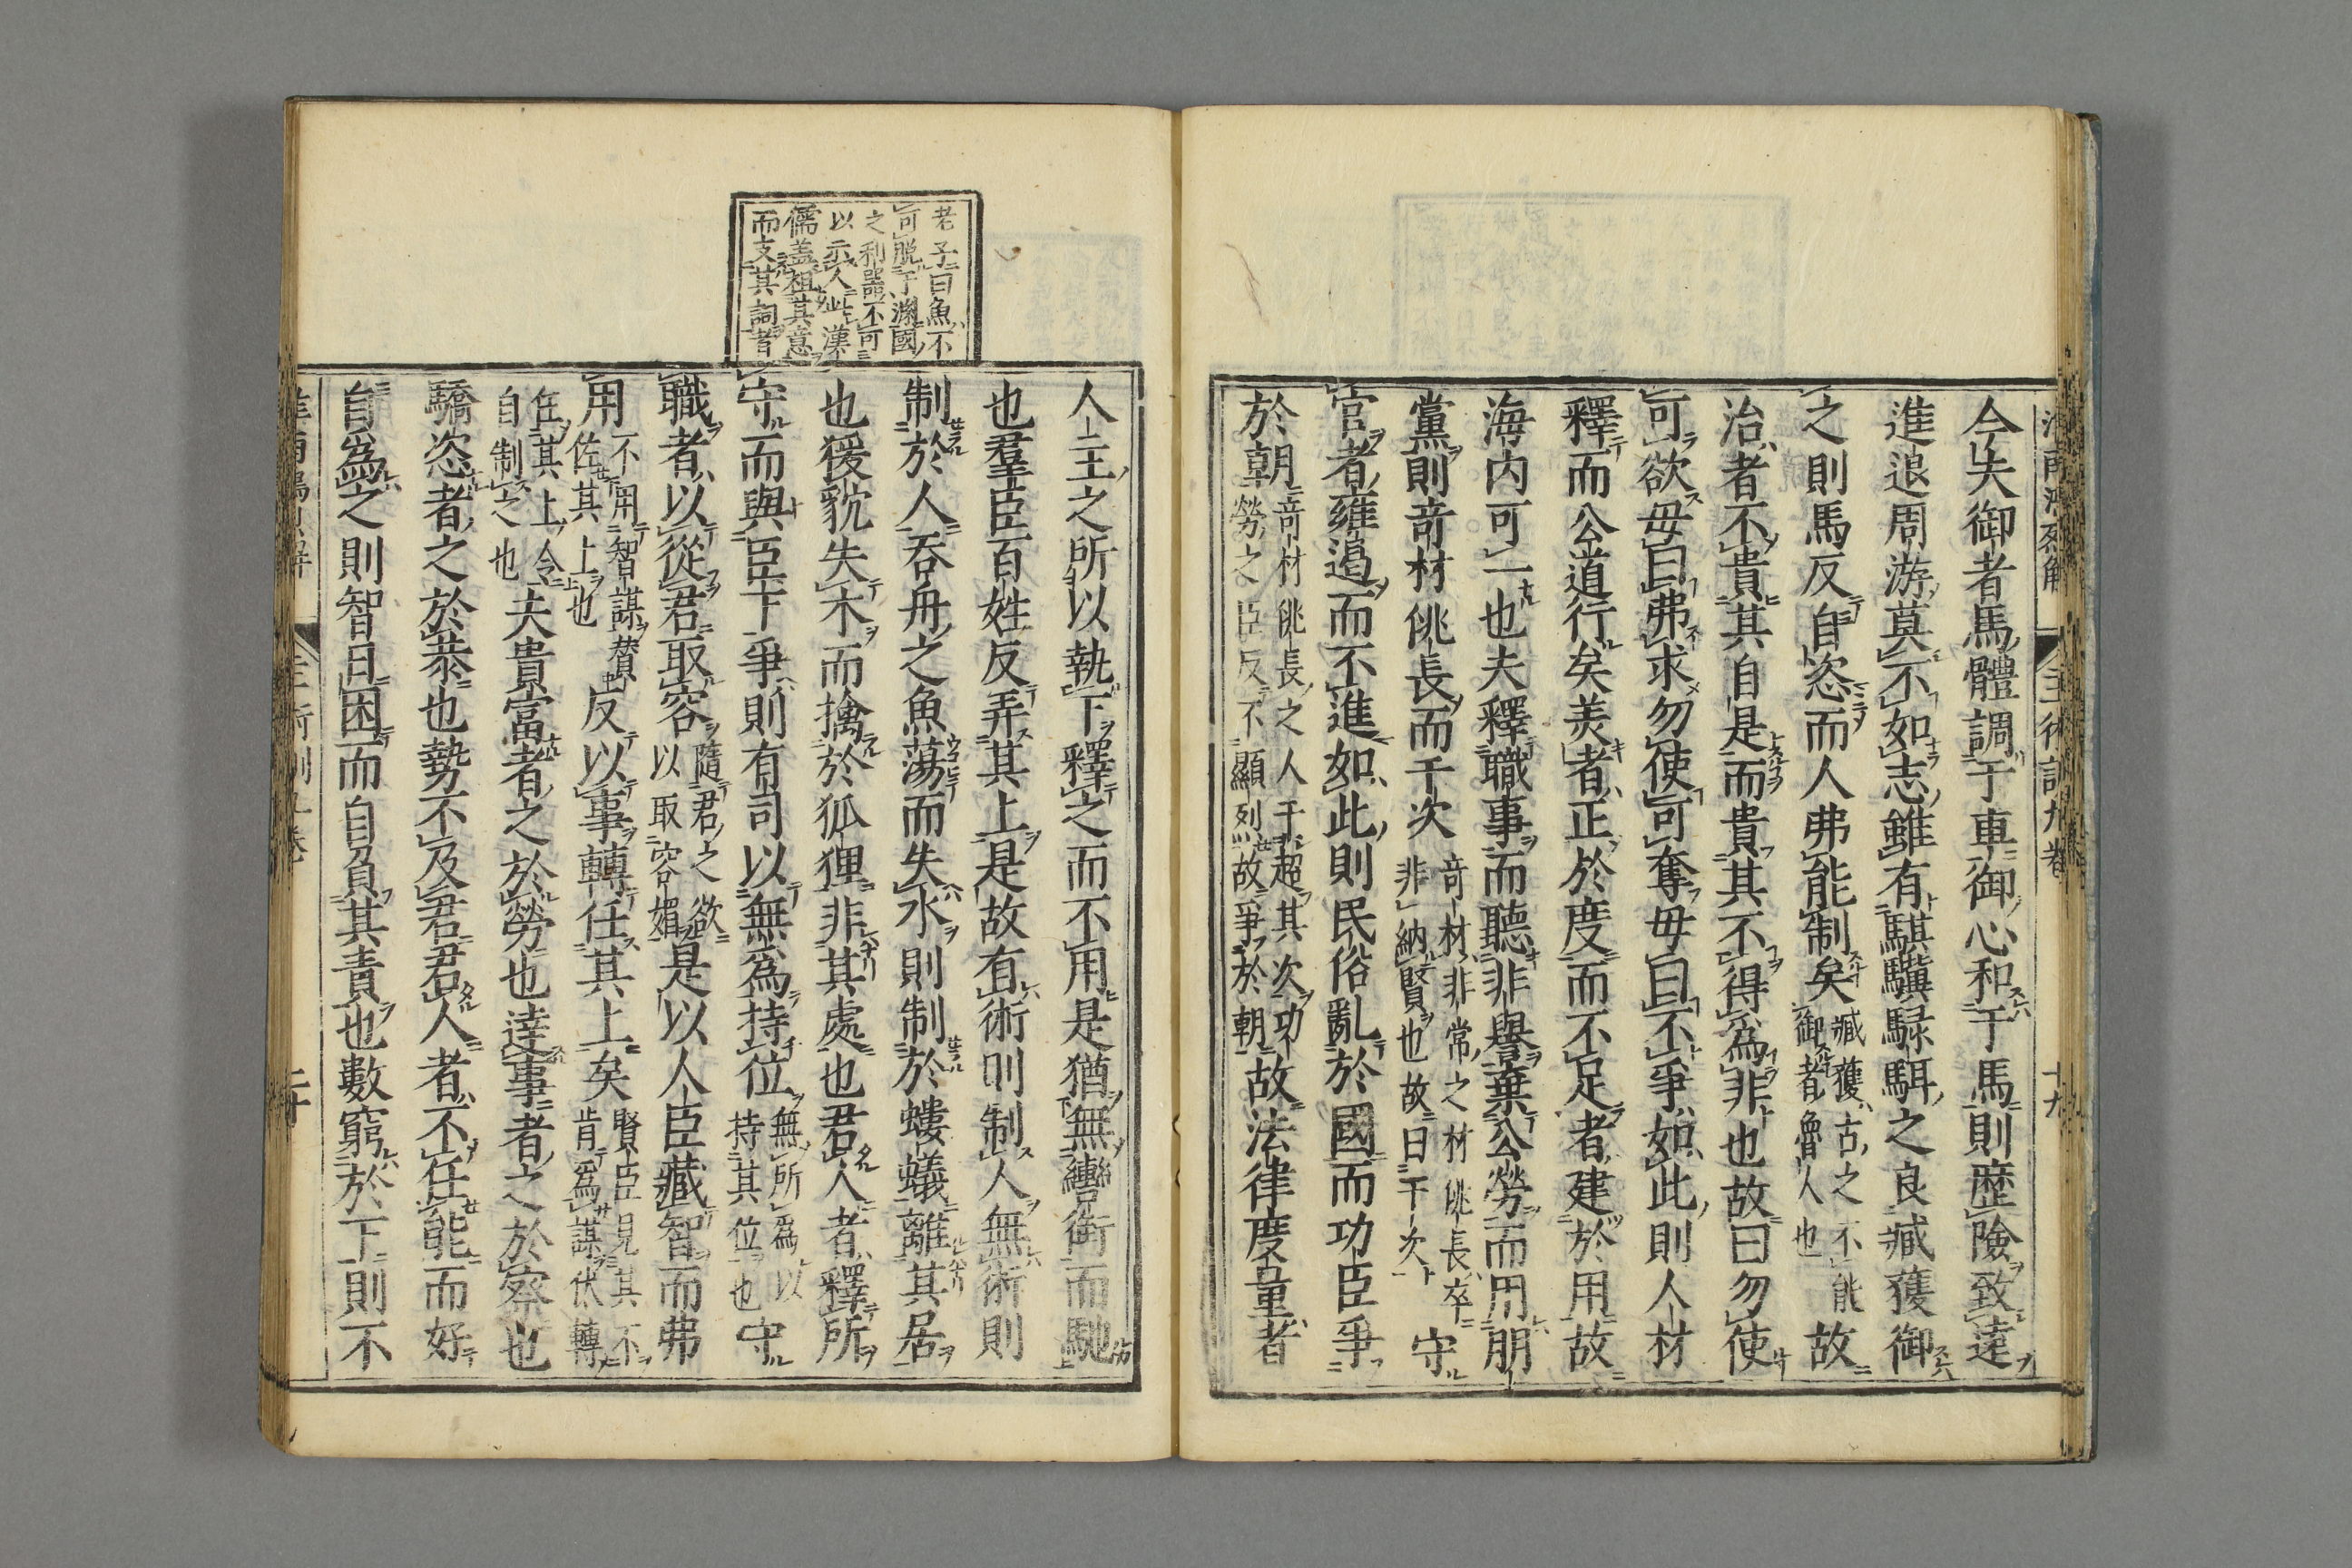 淮南鴻烈解 主術訓九卷 十九
今夫御者馬體調于車御心和于馬則歷險致遠
進退周游莫不如志雖有騏驥騄駬之良臧獲御
之則馬反自恣而人弗能制矣臧獲古之不能御者魯人也故
治者不貴其自是而貴其不得爲非也故曰勿使
可欲毋曰弗求勿使可奪毋曰不爭如此則人材
釋而公道行矣美者正於度而不足者建於用故
海内可一也夫釋職事而聽非譽棄公勞而用朋
黨則奇材佻長而干次奇材非常之材佻長卒非納賢也故曰干次守
官者雍遏而不進如此則民俗亂於國而功臣爭
於朝奇材佻長之人干超其次功勞之臣反不顯列故爭於朝故法律度量者
老子曰魚不
可脱于淵國
之利器不可
以示人此漢
儒盖祖其意
而支其詞者
人主之所以執下釋之而不用是猶無轡銜而馳
也羣臣百姓反弄其上是故有術則制人無術則
制於人吞舟之魚蕩而失水則制於螻蟻離其居
也猨狖失木而擒於狐狸非其處也君人者釋所
守而與臣下爭則有司以無爲持位無所爲以持其位也守
職者以從君取容隨君之欲以取容媚是以人臣藏智而弗
用不用智謀贊佐其上也反以事轉任其上矣賢臣見其不肯爲謀伏轉
任其上令自制之也夫貴富者之於勞也達事者之於察也
驕恣者之於恭也勢不及君君人者不任能而好
自爲之則智日困而自負其責也數窮於下則不
二十